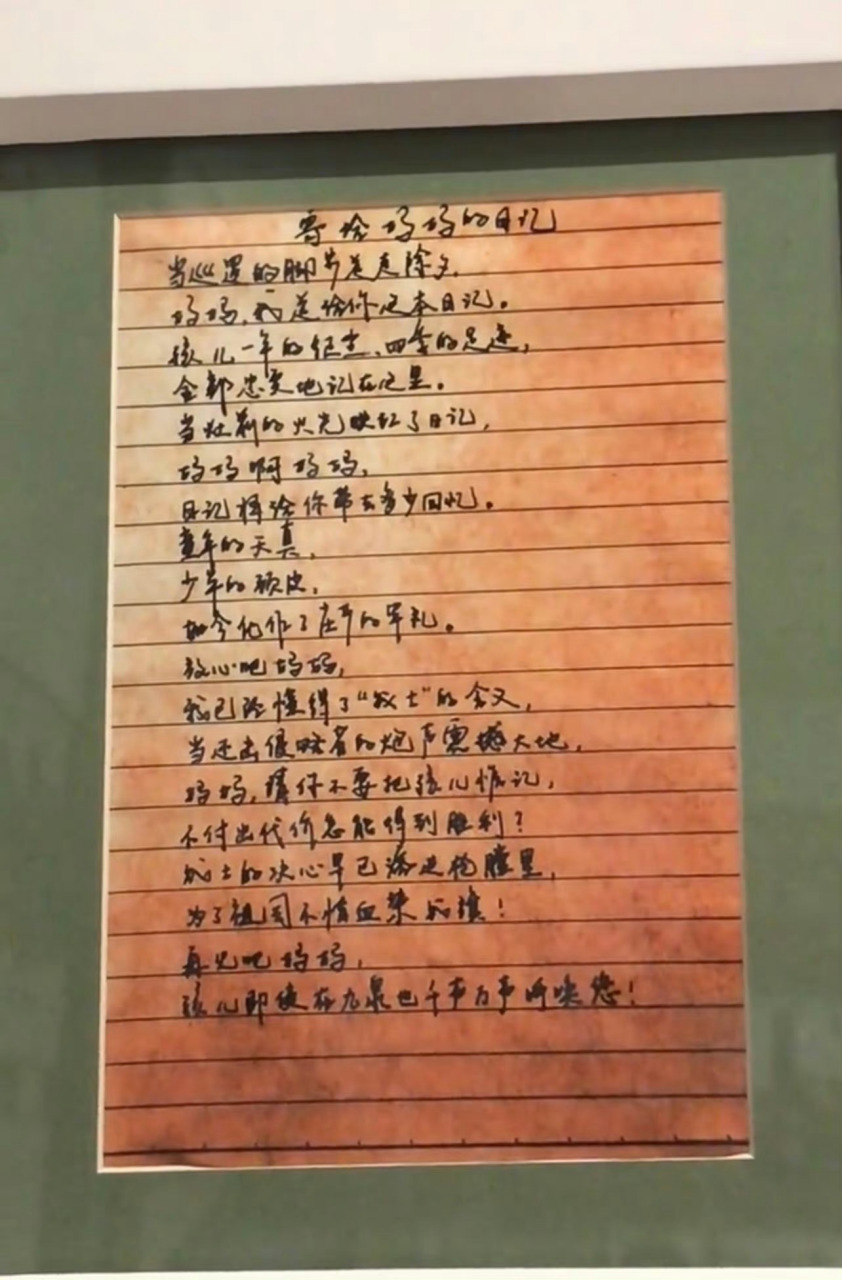 寄给妈妈的日记
当巡逻的脚步走走除夕，
妈妈，我送给你这本日记。
孩儿一年的纪念、四季的足迹，
全部忠实地记在这里。
当灶前的火光映红了日记，
妈妈啊妈妈，
日记将给你带去多少回忆。
童年的天真，
少年的顽皮，
如今化作了庄严的军礼。
放心吧妈妈，
我已经懂得了“战士”的含义，
当还击侵略者的炮声震撼大地，
妈妈，请你不要把孩儿惦记，
不付出代价怎能得到胜利？
战士的决心早已溶进枪膛里，
为了祖国不惜血染战旗！
再见吧妈妈，
孩儿即使在九泉也千声万声呼唤您！